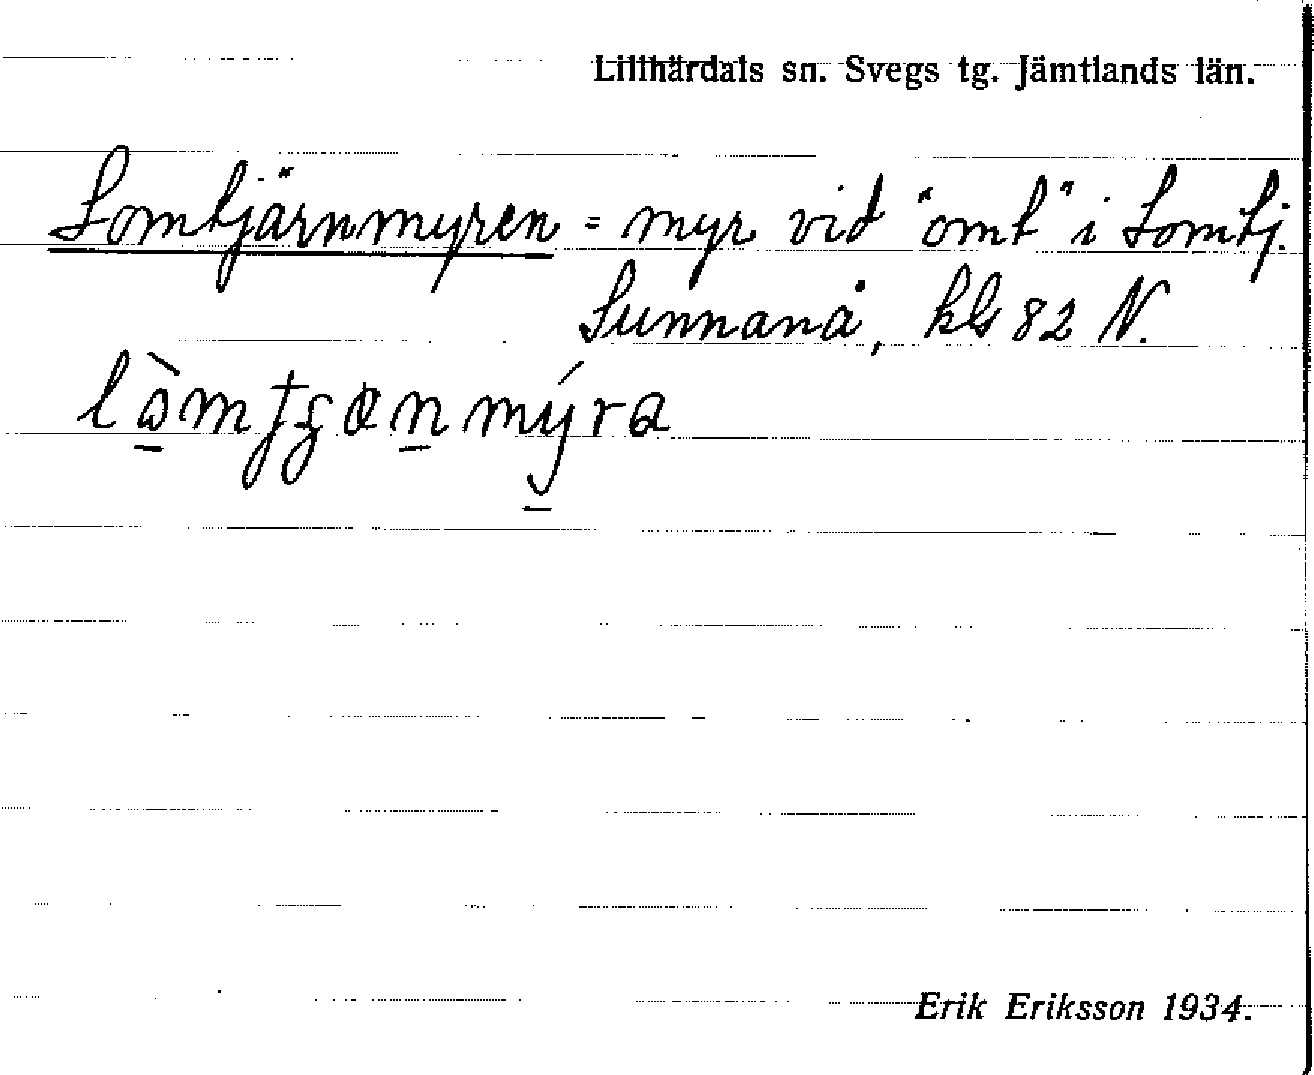 Lillhärdals sn. Svegs tg. Jämtlands län.
Lomtjärnmyren = myr vid "omt" i Lomtj.
Sunnanå, kls 82 N.
Erik Eriksson 1934.